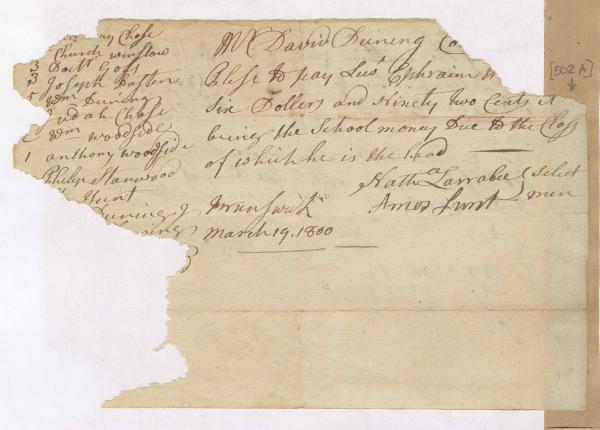 ny Chase
3 Church winslow
3 Doctr Goss
5 Joseph Bosten
Wm Duning
Judah Chase
2 Wm Woodside
1 anthony woodside
Philip Stanwood
Hunt
Duning
Mr David Duning Co
Plese to pay Lut Ephraim H
Six Dollers and Ninety two Cents it
being the School money Due to the Class
of which he is the head
Nathll Larrabee } Select
Amos Lunt men
Brunswick
March 19. 1800
[502A]